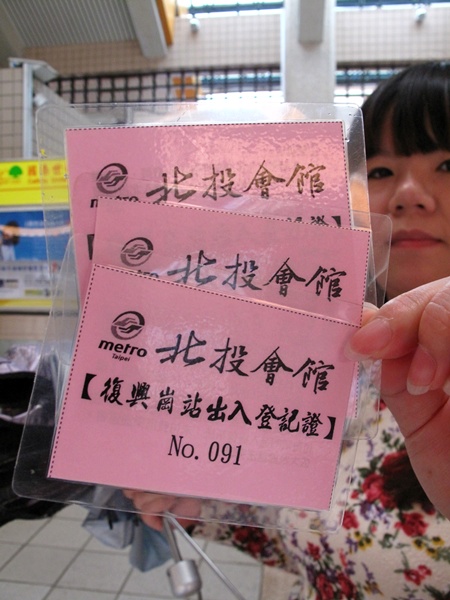 北投會館
metro
北投會館
metro
北投會館
metro
Taipei
【復興崗站出入登記證】
No. 091